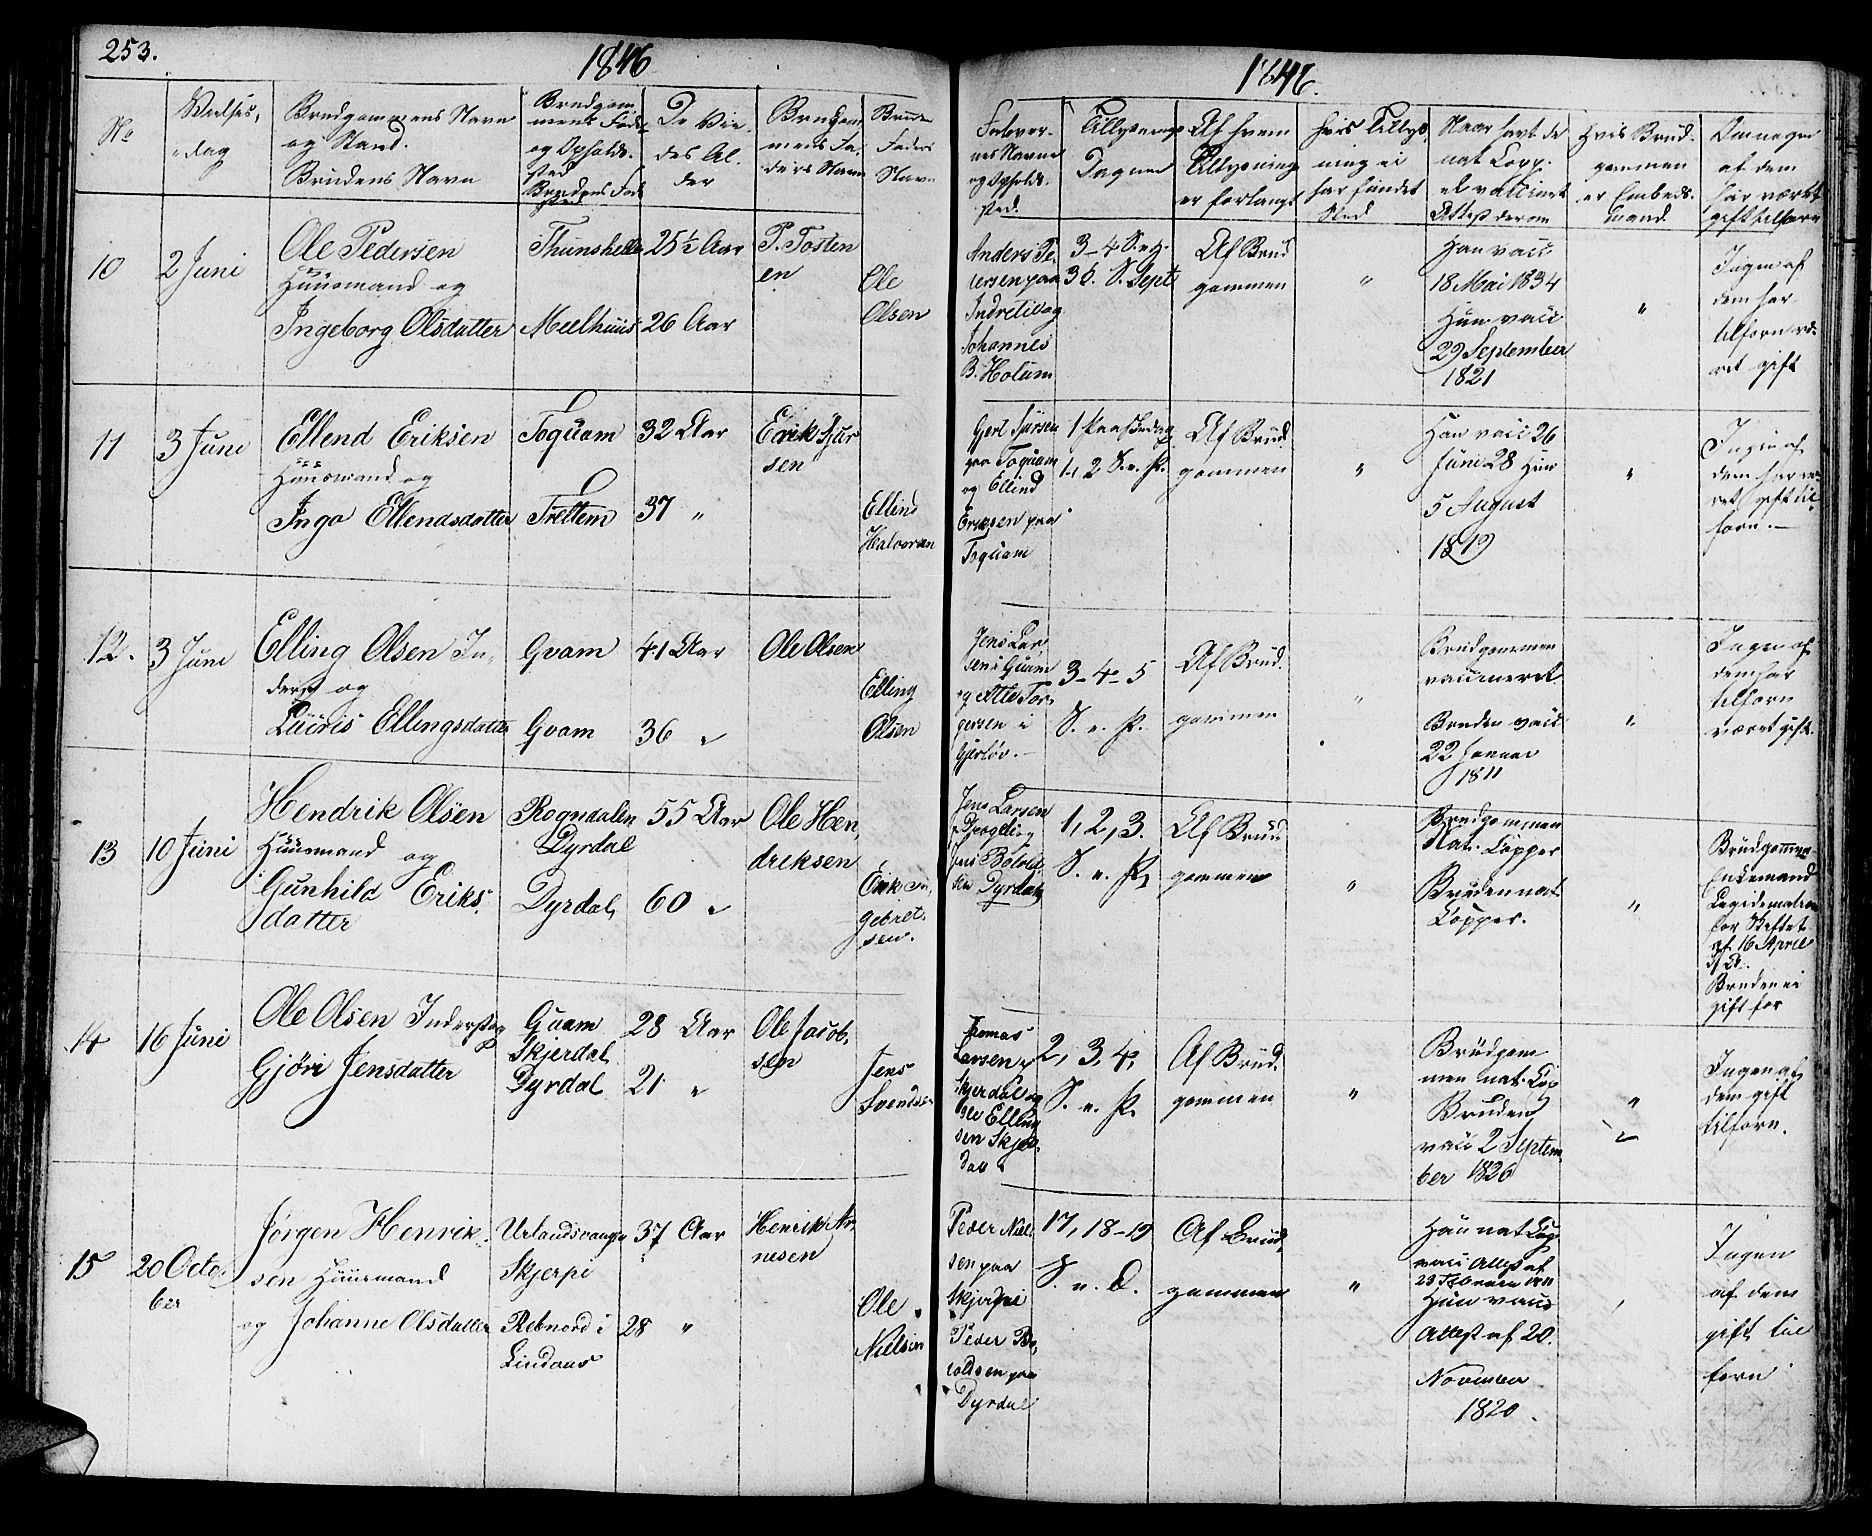 253.
1846
1846.
No
Vielses,
dag
Brudgommens Navn
og Stand.
Brudens Navn
Brudgom
mens Føde
og Opholds.
sted
Brudens Føde
De Vie-
des Al-
der
Brudgom
mens Fa-
ders Navn
Brudens
Faders
Navn
Forlover-
nes Navne
og Opholds-
sted.
Tillysnings
Dagene
Af hvem
Tillysning
er forlangt
Hvis Tillys
ning ei
har fundet
Sted
Naar havt de
nat. Kopp.
el vaccineret
Attest derom
Hvis Brud-
gommen
er Embeds-
mand.
Om nogen
af dem
har været
gift tilforn
10
2 Juni
Ole Pedersen
Huusmand og
Ingeborg Olsdatter
Thunshelle
Meelhuus
25½ Aar
26 Aar
P. Tosten
en
Ole
Olsen
Anders Pe-
dersen paa
Indrelid og
Johannes
B. Holum
3-4 S. e. H.
3 S. Sept
Af Brud
gommen
"
Han vacc
18 Mai 1834
Hun vacc
29 September
1821
"
Ingen af
dem har
tilforn væ-
ret gift
11
3 Juni
Ellend Eriksen
Huusmand og
Inga Ellendsdatter
Toquam
Frettem
32 Aar
37 "
Erik Sjur
sen
Ellend
Halvorsen
Gert Sjursen
paa Toquam
og Ellind
Ericsen paa
Toquam
1 Paaskedag
1, 2 S. e. P.
Af Brud
gommen
"
Han vacc 26
Juni 28 Hun
5 August
1819
"
Ingen af
dem har væ-
ret gift til
forn.-
12.
3 Juni
Elling Olsen In-
derst og
Luuris Ellingsdatter
Gvam
Gvam
41 Aar
36 "
Ole Olsen
Elling
Olsen
Jens Lar
sen i Guam
og Atle Tor-
gersen i
3-4-5
S. e. P.
Af Brud
gommen
"
Brudgommen
vaccineret
Bruden vacc
22 Januar
1811
"
Ingen af
dem har
tilforn
været gift.
13
10 Juni
Hendrik Olsen
Huusmand og
Gunhild Eriks-
datter
Rogndalen
Dyrdal
Dyrdal,
55 Aar
60 "
Ole Hen,
driksen
Erik In,
gebret,
sen.
Jens Larsen
Dyrdal,
1, 2, 3.
S. e. P.
Af Brud
gommen
"
Brudgommen
Nat. Kopper
Bruden nat.
Kopper.
"
Brudgommen
Enkemand
for Skiftet
af 16 April
Bruden ei
gift før
14
16 Juni
Ole Olsen Inderst og
Gjøri Jensdatter
Guam
Skjerdal
Dyrdal
28 Aar
21 "
Ole Jacob,
sen
Jens
Svendsen
Thomas
Larsen
Skjerdal og
Ole Elling
sen Skjer
dal
2, 3, 4,
S. e. P.
Af Brud.
gommen
"
Brudgom
men nat. Kop
Bruden
vacc 2 Septem-
ber 1826
"
Ingen af
dem gift
tilforn.
15
20 Octo
ber
Jørgen Henrik-
sen Huusmand
og Johanne Olsdatter
Urlandsvangen
Skjerpi
Rebnord i
Lindaas
37 Aar
28 "
Henrik Ar
nesen
Ole
Nielsen
Peder Niel
sen paa
Skjerpi
Peder Bo-
toldsen paa
Dyrdal
17, 18-19
S. e. T.
Af Brud,
gommen
"
Han nat Kop
vacc Attest af
Hun vacc
Attest af 20.
November
1820.
Ingen
af dem
gift til
forn